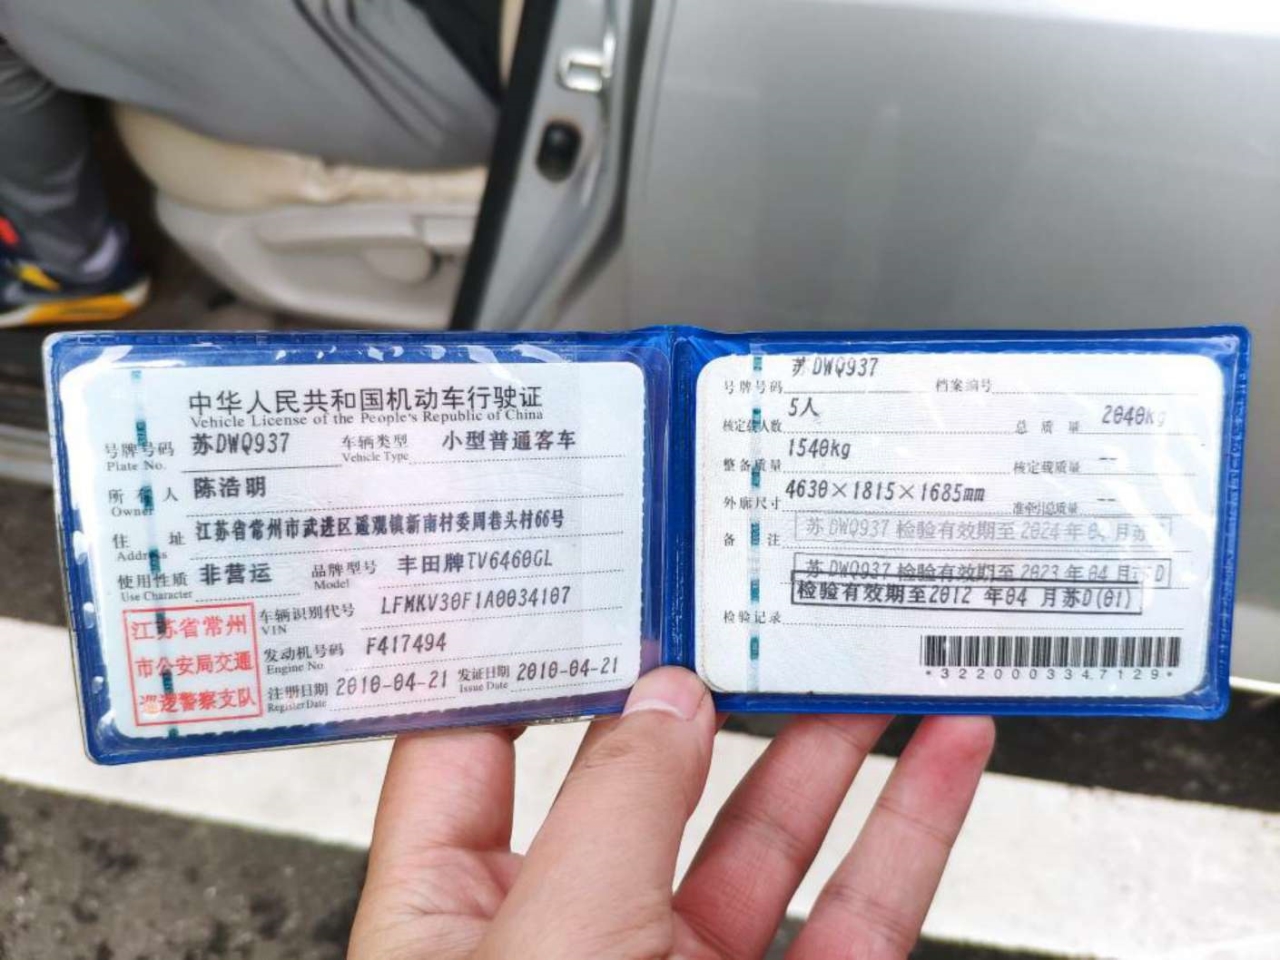 中华人民共和国机动车行驶证
Vehicle License of the People's Republic of China
号牌号码 苏DWQ937 车辆类型 小型普通客车
Plate No. Vehicle Type
所有人 陈浩明
Owner
住址 江苏省常州市武进区遥观镇新南村委周巷头村66号
Address
使用性质 非营运 品牌型号 丰田牌TV6460GL
Use Character Model
江苏省常州
市公安局交通
巡逻警察支队
车辆识别代号 LFMKV30F1A0034107
VIN
发动机号码 F417494
Engine No.
注册日期 2010-04-21 发证日期 2010-04-21
Register Date Issue Date
号牌号码 苏DWQ937 档案编号
核定载人数 5人 总质量 2040kg
整备质量 1540kg 核定载质量 --
外廓尺寸 4630×1815×1685mm 准牵引总质量 --
备注 苏DWQ937 检验有效期至2024年04月苏
苏DWQ937 检验有效期至2023年04月苏D
检验有效期至2012年04月苏D(01)
检验记录
*3220003347129*